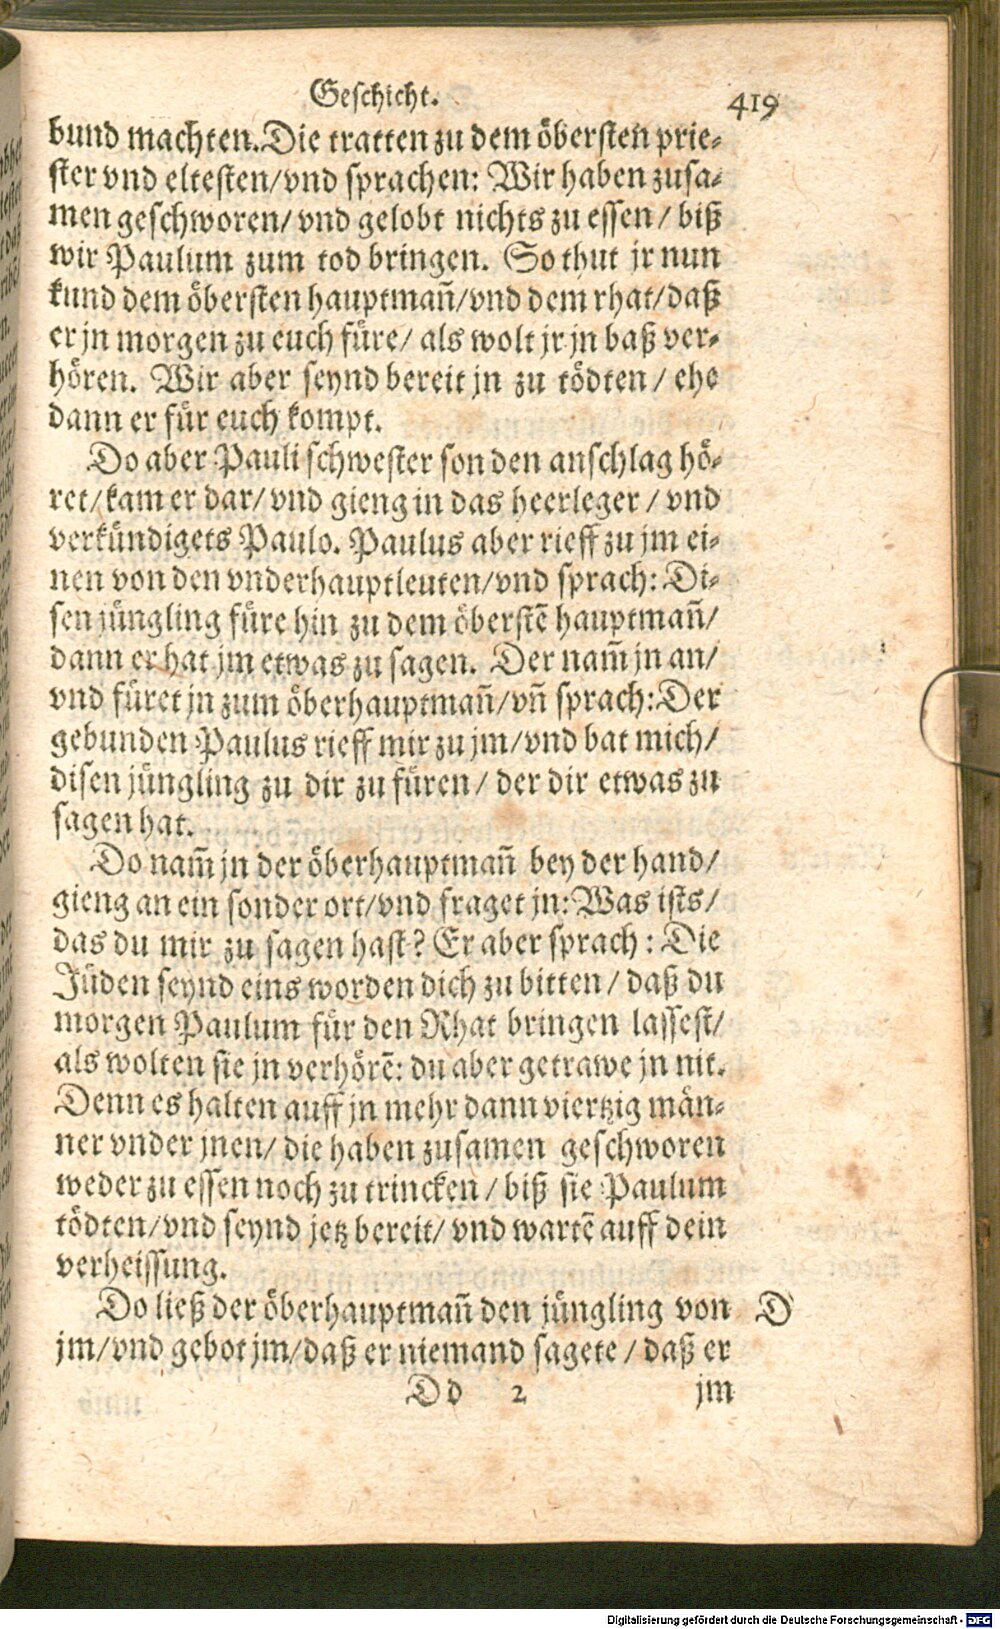 Geschicht. 419
bund machten. Die tratten zu dem öbersten prie-
ster vnd eltesten/ vnd sprachen: Wir haben zusa-
men geschworen/ vnd gelobt nichts zu essen/ biß
wir Paulum zum tod bringen. So thut jr nun
kund dem öbersten hauptmañ/ vnd dem rhat/ daß
er jn morgen zu euch füre/ als wolt jr jn baß ver-
hören. Wir aber seynd bereit jn zu tödten/ ehe
dann er für euch kompt.
Do aber Pauli schwester son den anschlag hö-
ret/ kam er dar/ vnd gieng in das heerleger/ vnd
verkündigets Paulo. Paulus aber rieff zu jm ei-
nen von den vnderhauptleuten/ vnd sprach: Di-
sen jüngling füre hin zu dem öberstẽ hauptmañ/
dann er hat jm etwas zu sagen. Der nam̃ jn an/
vnd füret jn zum öberhauptmañ/ vñ sprach: Der
gebunden Paulus rieff mir zu jm/ vnd bat mich/
disen jüngling zu dir zu füren/ der dir etwas zu
sagen hat.
Do nam̃ jn der öberhauptmañ bey der hand/
gieng an ein sonder ort/ vnd fraget jn: Was ists/
das du mir zu sagen hast? Er aber sprach: Die
Jüden seynd eins worden dich zu bitten/ daß du
morgen Paulum für den Rhat bringen lassest/
als wolten sie jn verhörẽ: du aber getrawe jn nit.
Denn es halten auff jn mehr dann viertzig män-
ner vnder jnen/ die haben zusamen geschworen
weder zu essen noch zu trincken/ biß sie Paulum
tödten/ vnd seynd jetz bereit/ vnd wartẽ auff dein
verheissung.
Do ließ der öberhauptmañ den jüngling von D
jm/ vnd gebot jm/ daß er niemand sagete/ daß er
Dd 2 jm
Digitalisierung gefördert durch die Deutsche Forschungsgemeinschaft - DFG